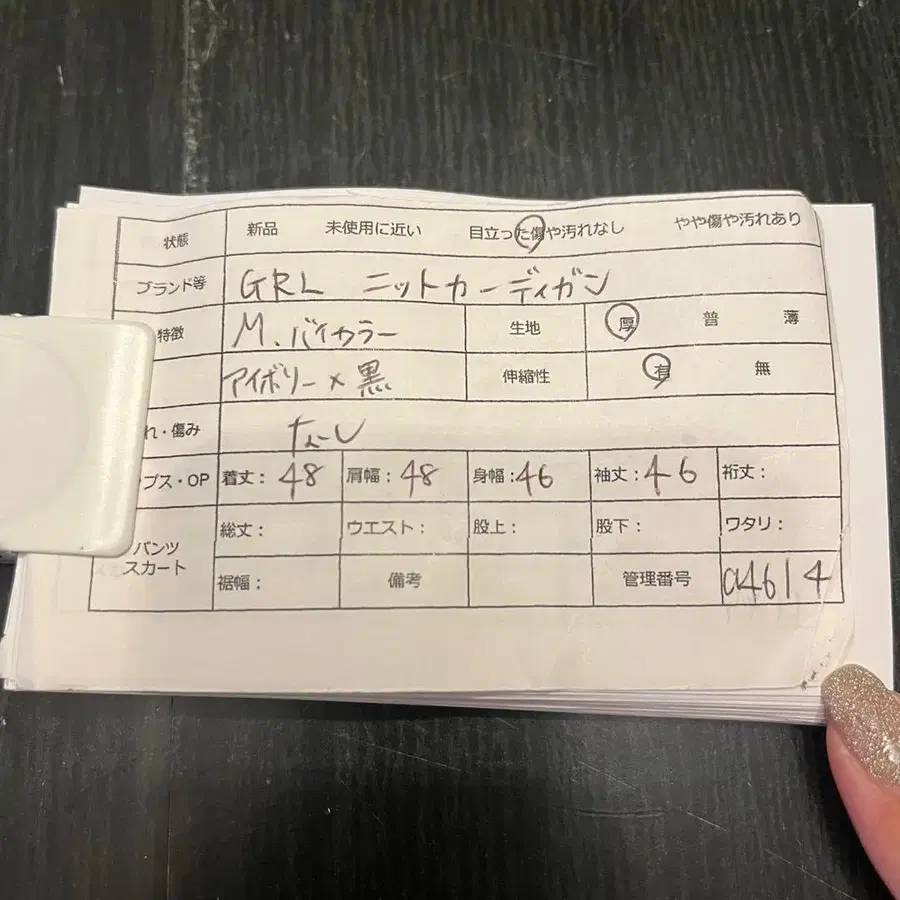 状態 新品 未使用に近い 目立った傷や汚れなし やや傷や汚れあり
ブランド等 GRL ニットカーディガン
特徴 M、バイカラー 生地 厚 普 薄
アイボリー×黒 伸縮性 有 無
れ・傷み なし
プス・OP 着丈：48 肩幅：48 身幅：46 袖丈：46 裄丈：
パンツ 総丈： ウエスト： 股上： 股下： ワタリ：
スカート 裾幅： 備考 管理番号 a4614